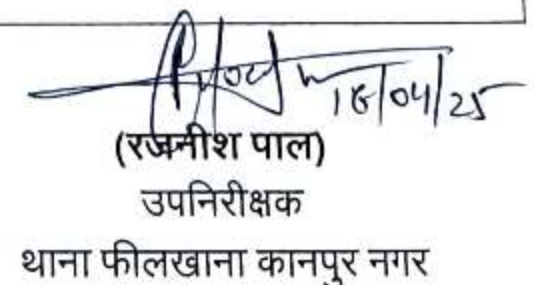 18/04/25
(रजनीश पाल)
उपनिरीक्षक
थाना फीलखाना कानपुर नगर